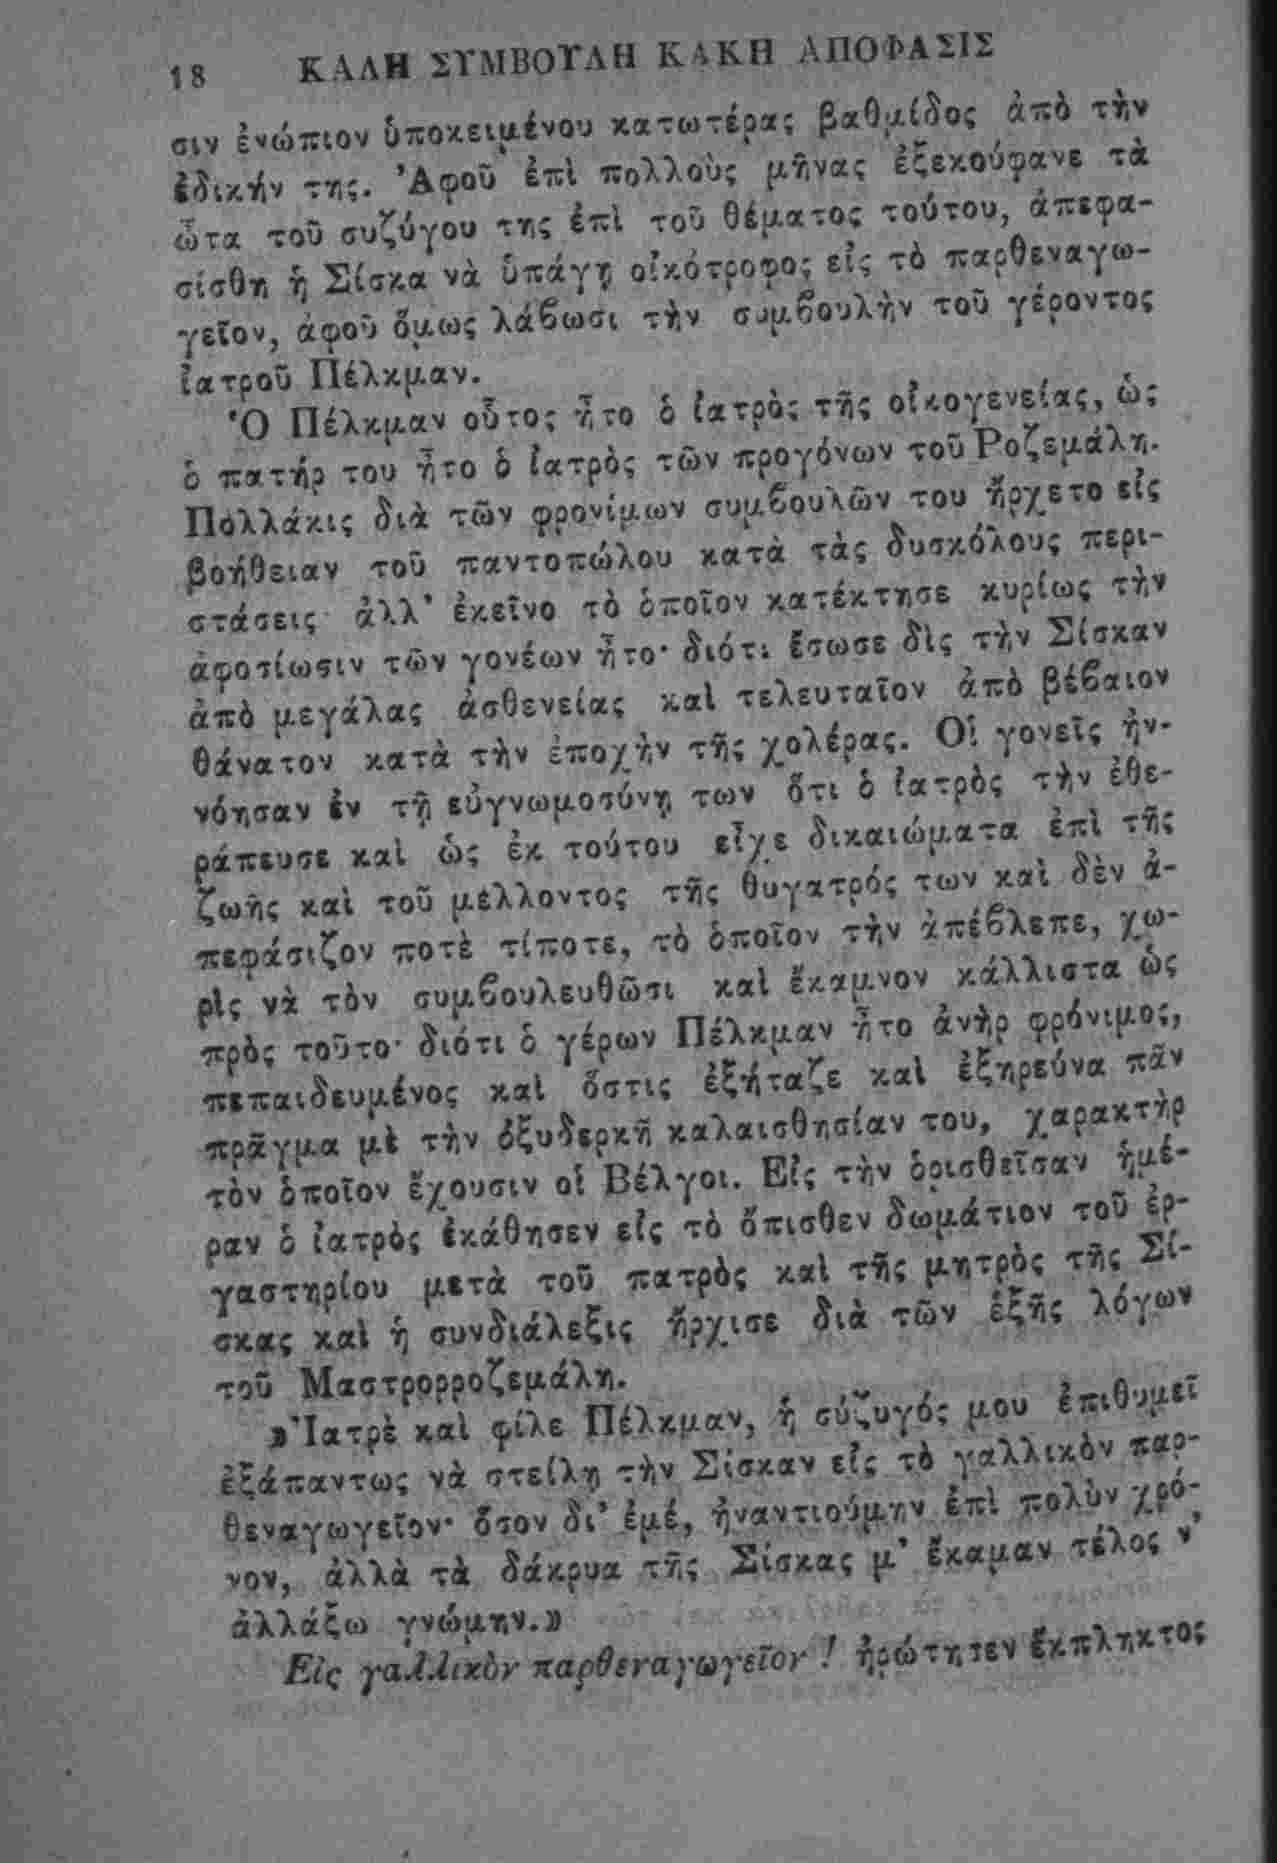 18 ΚΑΛΗ ΣΥΜΒΟΥΛΗ ΚΑΚΗ ΑΠΟΦΑΣΙΣ
σιν ἐνώπιον ὑποκειμένου κατωτέρας βαθμίδος ἀπὸ τὴν
ἐδικήν της. Ἀφοῦ ἐπὶ πολλοὺς μῆνας ἐξεκούφανε τὰ
ὦτα τοῦ συζύγου της ἐπὶ τοῦ θέματος τούτου, ἀπεφα-
σίσθη ἡ Σίσκα νὰ ὑπάγῃ οἰκότροφος εἰς τὸ παρθεναγω-
γεῖον, ἀφοῦ ὅμως λάβωσι τὴν συμβουλὴν τοῦ γέροντος
ἰατροῦ Πέλκμαν.
Ὁ Πέλκμαν οὗτος ἦτο ὁ ἰατρὸς τῆς οἰκογενείας, ὡς
ὁ πατήρ του ἦτο ὁ ἰατρὸς τῶν προγόνων τοῦ Ροζεμάλη.
Πολλάκις διὰ τῶν φρονίμων συμβουλῶν του ἤρχετο εἰς
βοήθειαν τοῦ παντοπώλου κατὰ τὰς δυσκόλους περι-
στάσεις· ἀλλ' ἐκεῖνο τὸ ὁποῖον κατέκτησε κυρίως τὴν
ἀφοσίωσιν τῶν γονέων ἦτο· διότι ἔσωσε δὶς τὴν Σίσκαν
ἀπὸ μεγάλας ἀσθενείας καὶ τελευταῖον ἀπὸ βέβαιον
θάνατον κατὰ τὴν ἐποχὴν τῆς χολέρας. Οἱ γονεῖς ἠν-
νόησαν ἐν τῇ εὐγνωμοσύνῃ των ὅτι ὁ ἰατρὸς τὴν ἐθε-
ράπευσε καὶ ὡς ἐκ τούτου εἶχε δικαιώματα ἐπὶ τῆς
ζωῆς καὶ τοῦ μέλλοντος τῆς θυγατρός των καὶ δὲν ἀ-
πεφάσιζον ποτὲ τίποτε, τὸ ὁποῖον τὴν ἀπέβλεπε, χω-
ρὶς νὰ τὸν συμβουλευθῶσι καὶ ἔκαμνον κάλλιστα ὡς
πρὸς τοῦτο· διότι ὁ γέρων Πέλκμαν ἦτο ἀνὴρ φρόνιμος,
πεπαιδευμένος καὶ ὅστις ἐξήταζε καὶ ἐξηρεύνα πᾶν
πρᾶγμα μὲ τὴν ὀξυδερκῆ καλαισθησίαν του, χαρακτὴρ
τὸν ὁποῖον ἔχουσιν οἱ Βέλγοι. Εἰς τὴν ὁρισθεῖσαν ἡμέ-
ραν ὁ ἰατρὸς ἐκάθησεν εἰς τὸ ὄπισθεν δωμάτιον τοῦ ἐρ-
γαστηρίου μετὰ τοῦ πατρὸς καὶ τῆς μητρὸς τῆς Σί-
σκας καὶ ἡ συνδιάλεξις ἤρχισε διὰ τῶν ἑξῆς λόγων
τοῦ Μαστρορροζεμάλη.
»Ἰατρὲ καὶ φίλε Πέλκμαν, ἡ σύζυγός μου ἐπιθυμεῖ
ἐξάπαντως νὰ στείλῃ τὴν Σίσκαν εἰς τὸ γαλλικὸν παρ-
θεναγωγεῖον· ὅσον δι' ἐμέ, ἠναντιούμην ἐπὶ πολὺν χρό-
νον, ἀλλὰ τὰ δάκρυα τῆς Σίσκας μ' ἔκαμαν τέλος ν'
ἀλλάξω γνώμην.»
Εἰς γαλλικὸν παρθεναγωγεῖον! ἠρώτησεν ἔκπληκτος